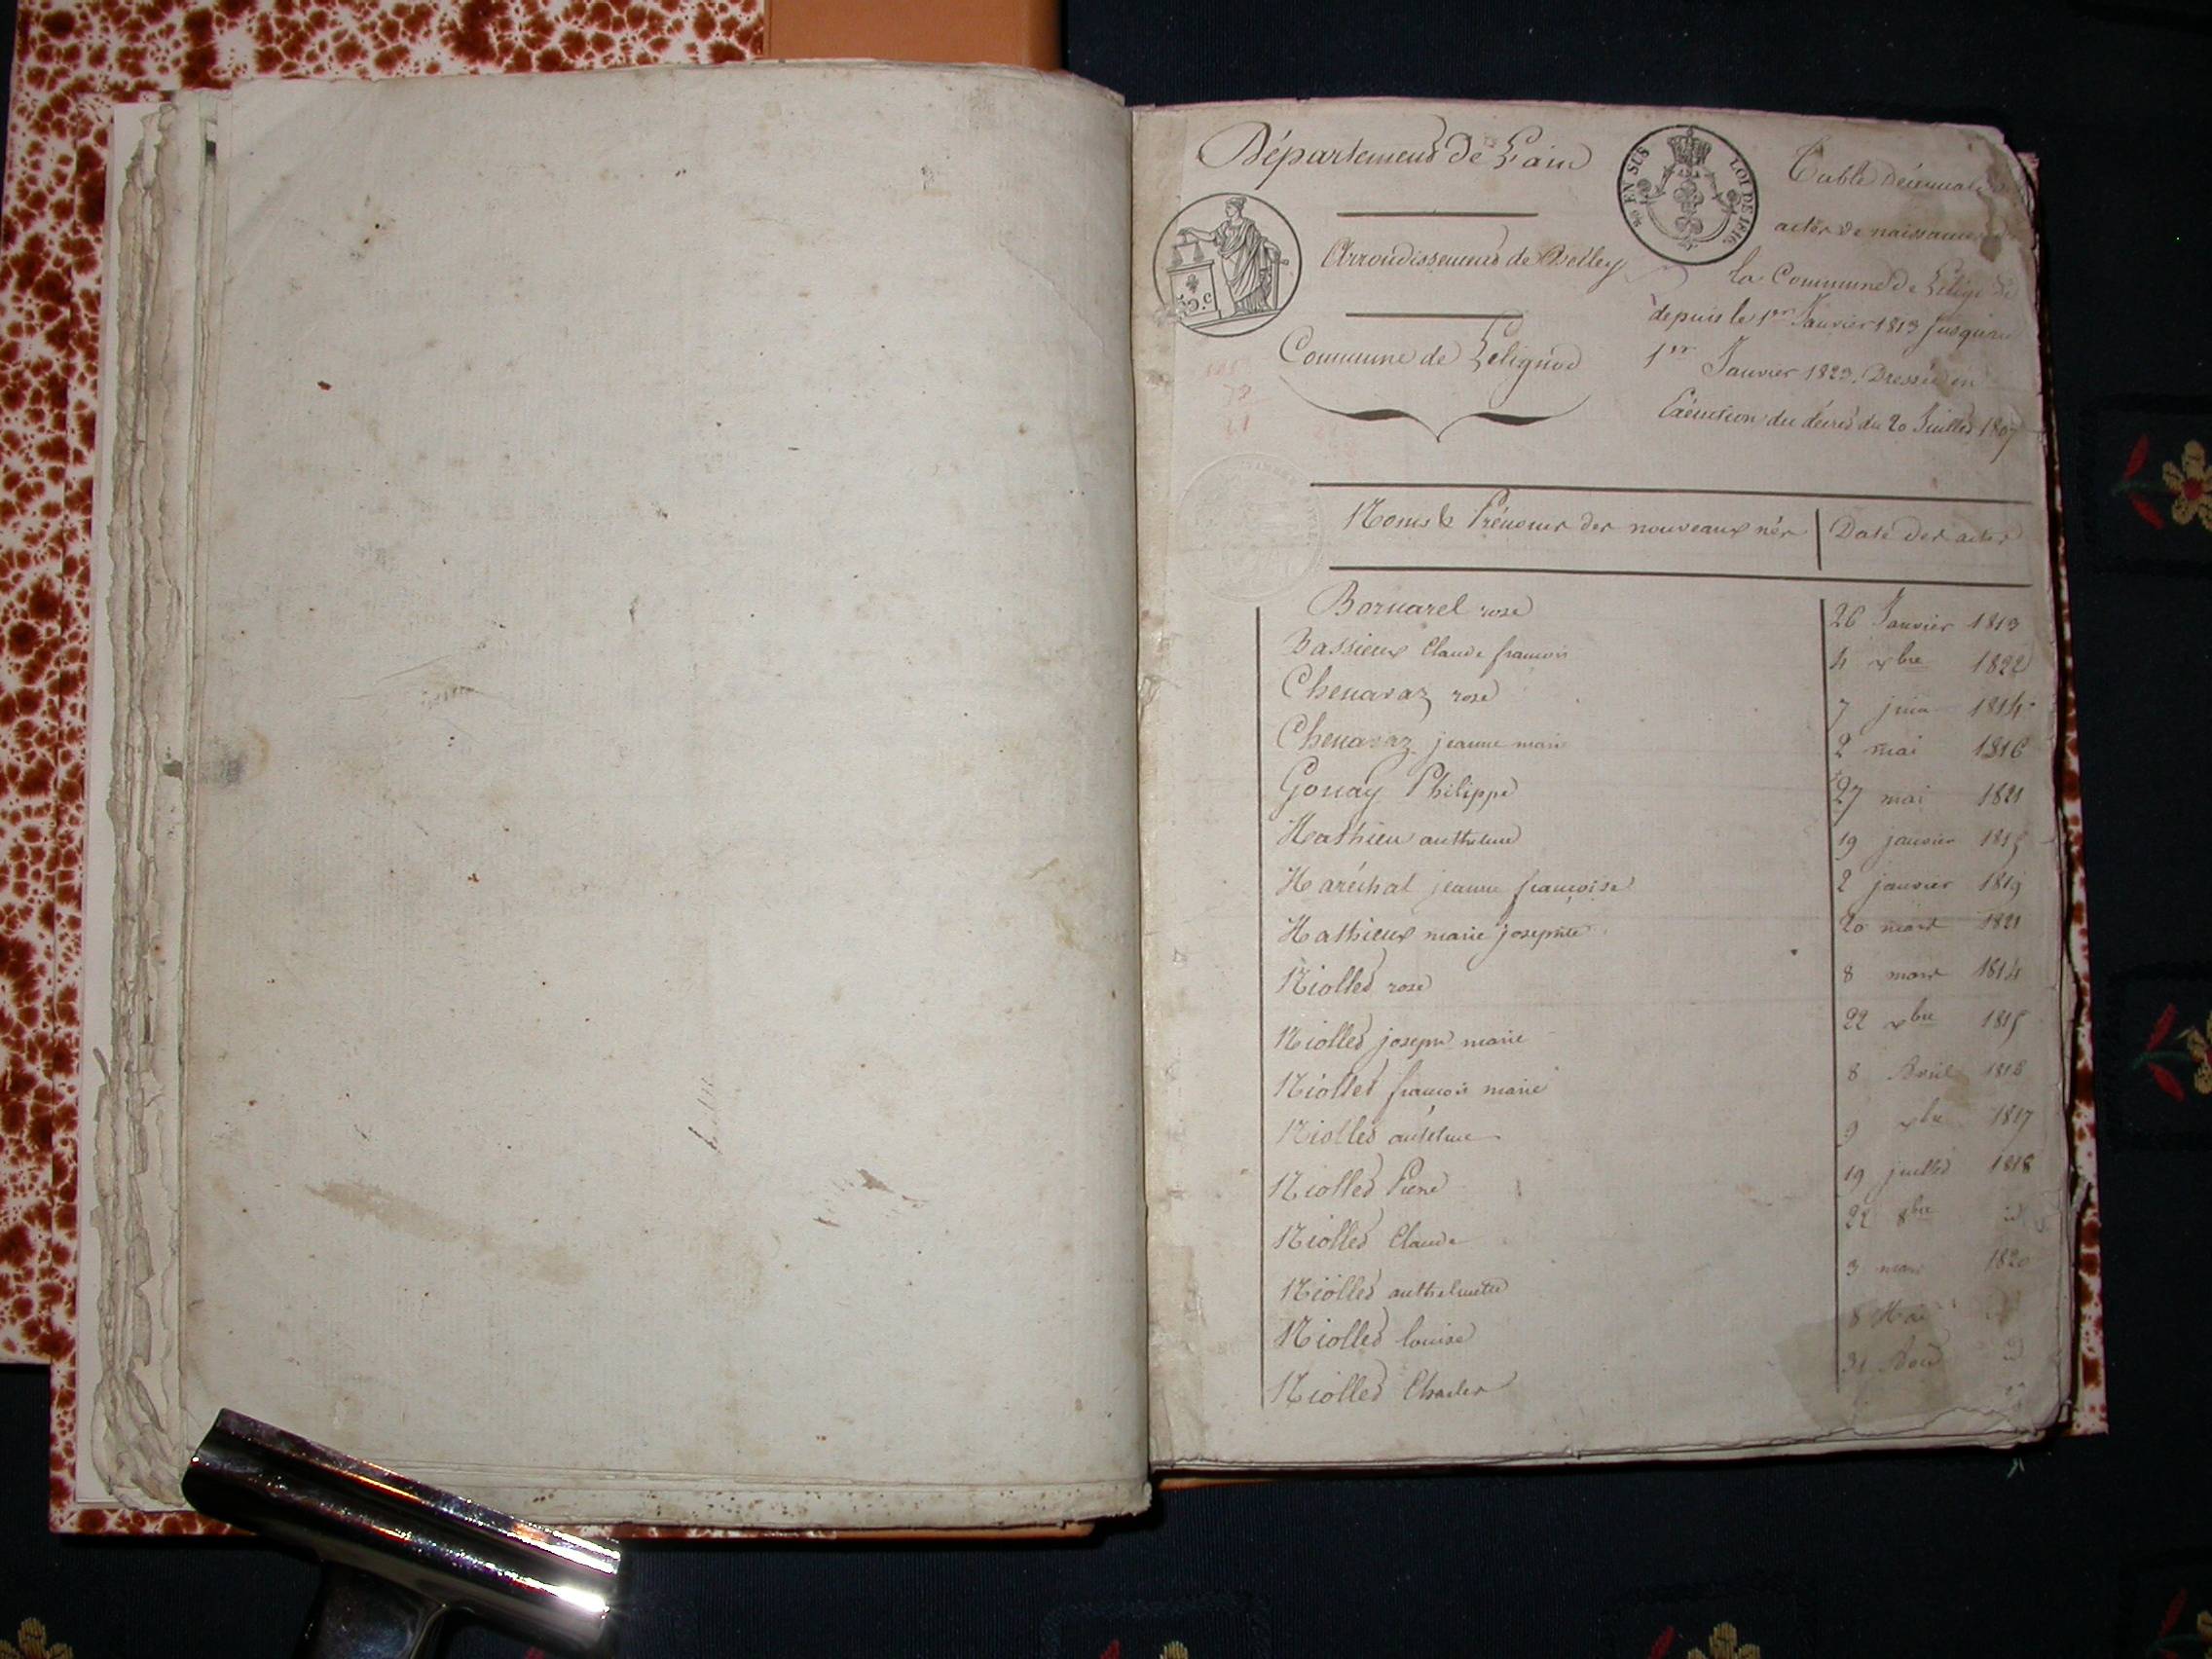 Département de L'ain
Arrondissement de Belley
Commune de Lelignod
EN SUS
LOI DE 1816
Table décennale
actes de naissance
la Commune de
depuis le 1er Janvier 1813 Jusqu'au
1er Janvier 1823. Dressée en
Exécution du décret du 20 Juillet 1807
Noms & Prénoms des nouveaux nés | Date des actes
Bornarel rose 26 Janvier 1813
Bassieux Claude françois 4 xbre 1822
Chenavaz rose 7 juin 1814
Chenavaz jeanne marie 2 mai 1816
Gonay Philippe 27 mai 1821
Mathieu anthelme 19 janvier 1815
Maréchal jeanne françoise 2 janvier 1819
Mathieux marie josephte 20 mars 1821
Niollet rose 8 mars 1814
Niollet joseph marie 22 xbre 1815
Niollet françois marie 8 1818
Niollet anthelme 9 xbre 1817
Niollet Pierre 19 juillet 1818
Niollet Claude 22 8bre id
Niollet anthelmette 3 mars 1820
Niollet louise 8 Mai
Niollet Charles 31 Aout id